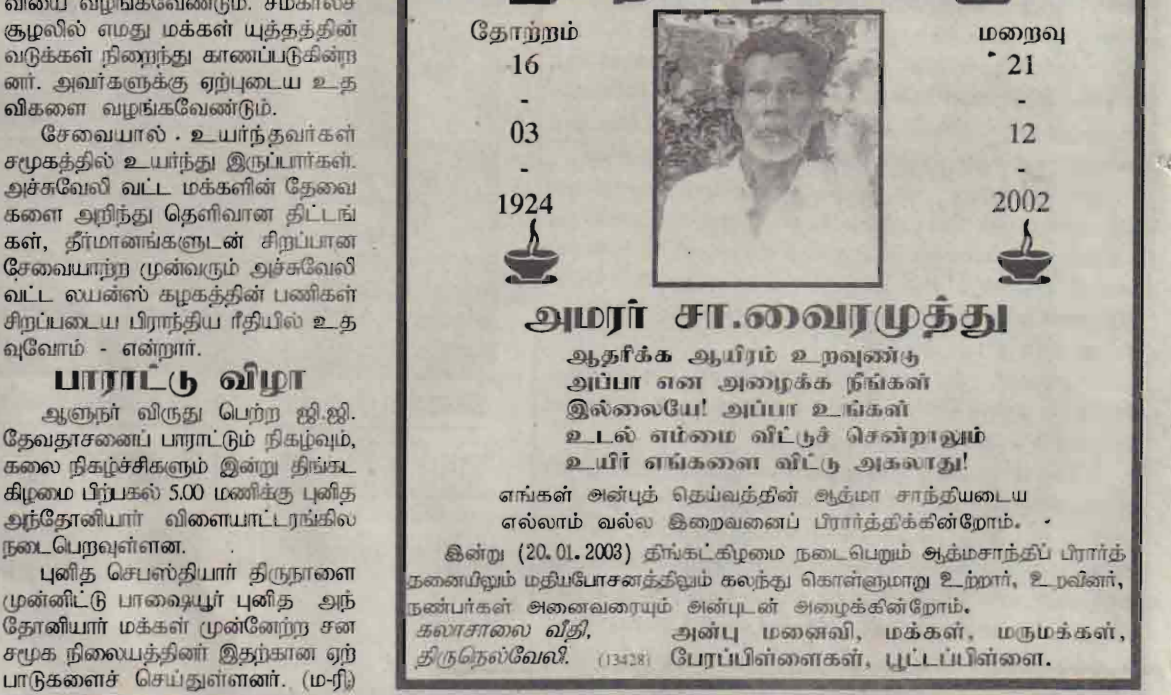 வியை வழங்கவேண்டும். சமகாலச்
சூழலில் எமது மக்கள் யுத்தத்தின்
வடுக்கள் நிறைந்து காணப்படுகின்ற
னர். அவர்களுக்கு ஏற்புடைய உத
விகளை வழங்கவேண்டும்.
சேவையால் உயர்ந்தவர்கள்
சமூகத்தில் உயர்ந்து இருப்பார்கள்.
அச்சுவேலி வட்ட மக்களின் தேவை
களை அறிந்து தெளிவான திட்டங்
கள், தீர்மானங்களுடன் சிறப்பான
சேவையாற்ற முன்வரும் அச்சுவேலி
வட்ட லயன்ஸ் கழகத்தின் பணிகள்
சிறப்படைய பிராந்திய ரீதியில் உத
வுவோம் - என்றார்.
பாராட்டு விழா
ஆளுநர் விருது பெற்ற ஜி.ஜி.
தேவதாசனைப் பாராட்டும் நிகழ்வும்,
கலை நிகழ்ச்சிகளும் இன்று திங்கட்
கிழமை பிற்பகல் 5.00 மணிக்கு புனித
அந்தோனியார் விளையாட்டரங்கில்
நடைபெறவுள்ளன.
புனித செபஸ்தியார் திருநாளை
முன்னிட்டு பாஷையூர் புனித அந்
தோனியார் மக்கள் முன்னேற்ற சன
சமூக நிலையத்தினர் இதற்கான ஏற்
பாடுகளைச் செய்துள்ளனர். (ம-ரி)
தோற்றம்
16
-
03
-
1924
மறைவு
21
-
12
-
2002
அமரர் சா.வைரமுத்து
ஆதரிக்க ஆயிரம் உறவுண்டு
அப்பா என அழைக்க நீங்கள்
இல்லையே! அப்பா உங்கள்
உடல் எம்மை விட்டுச் சென்றாலும்
உயிர் எங்களை விட்டு அகலாது!
எங்கள் அன்புத் தெய்வத்தின் ஆத்மா சாந்தியடைய
எல்லாம் வல்ல இறைவனைப் பிரார்த்திக்கின்றோம்.
இன்று (20.01.2003) திங்கட்கிழமை நடைபெறும் ஆத்மசாந்திப் பிரார்த்
தனையிலும் மதியபோசனத்திலும் கலந்து கொள்ளுமாறு உற்றார், உறவினர்,
நண்பர்கள் அனைவரையும் அன்புடன் அழைக்கின்றோம்.
கலாசாலை வீதி, அன்பு மனைவி, மக்கள், மருமக்கள்,
திருநெல்வேலி. (13428) பேரப்பிள்ளைகள், பூட்டப்பிள்ளை.